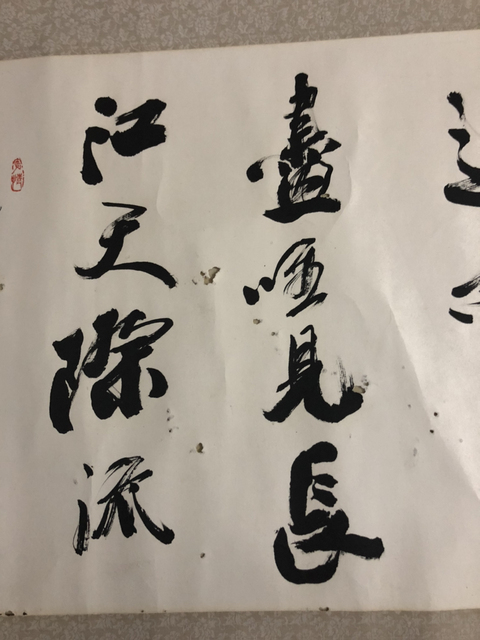 盡唯見長
江天際流